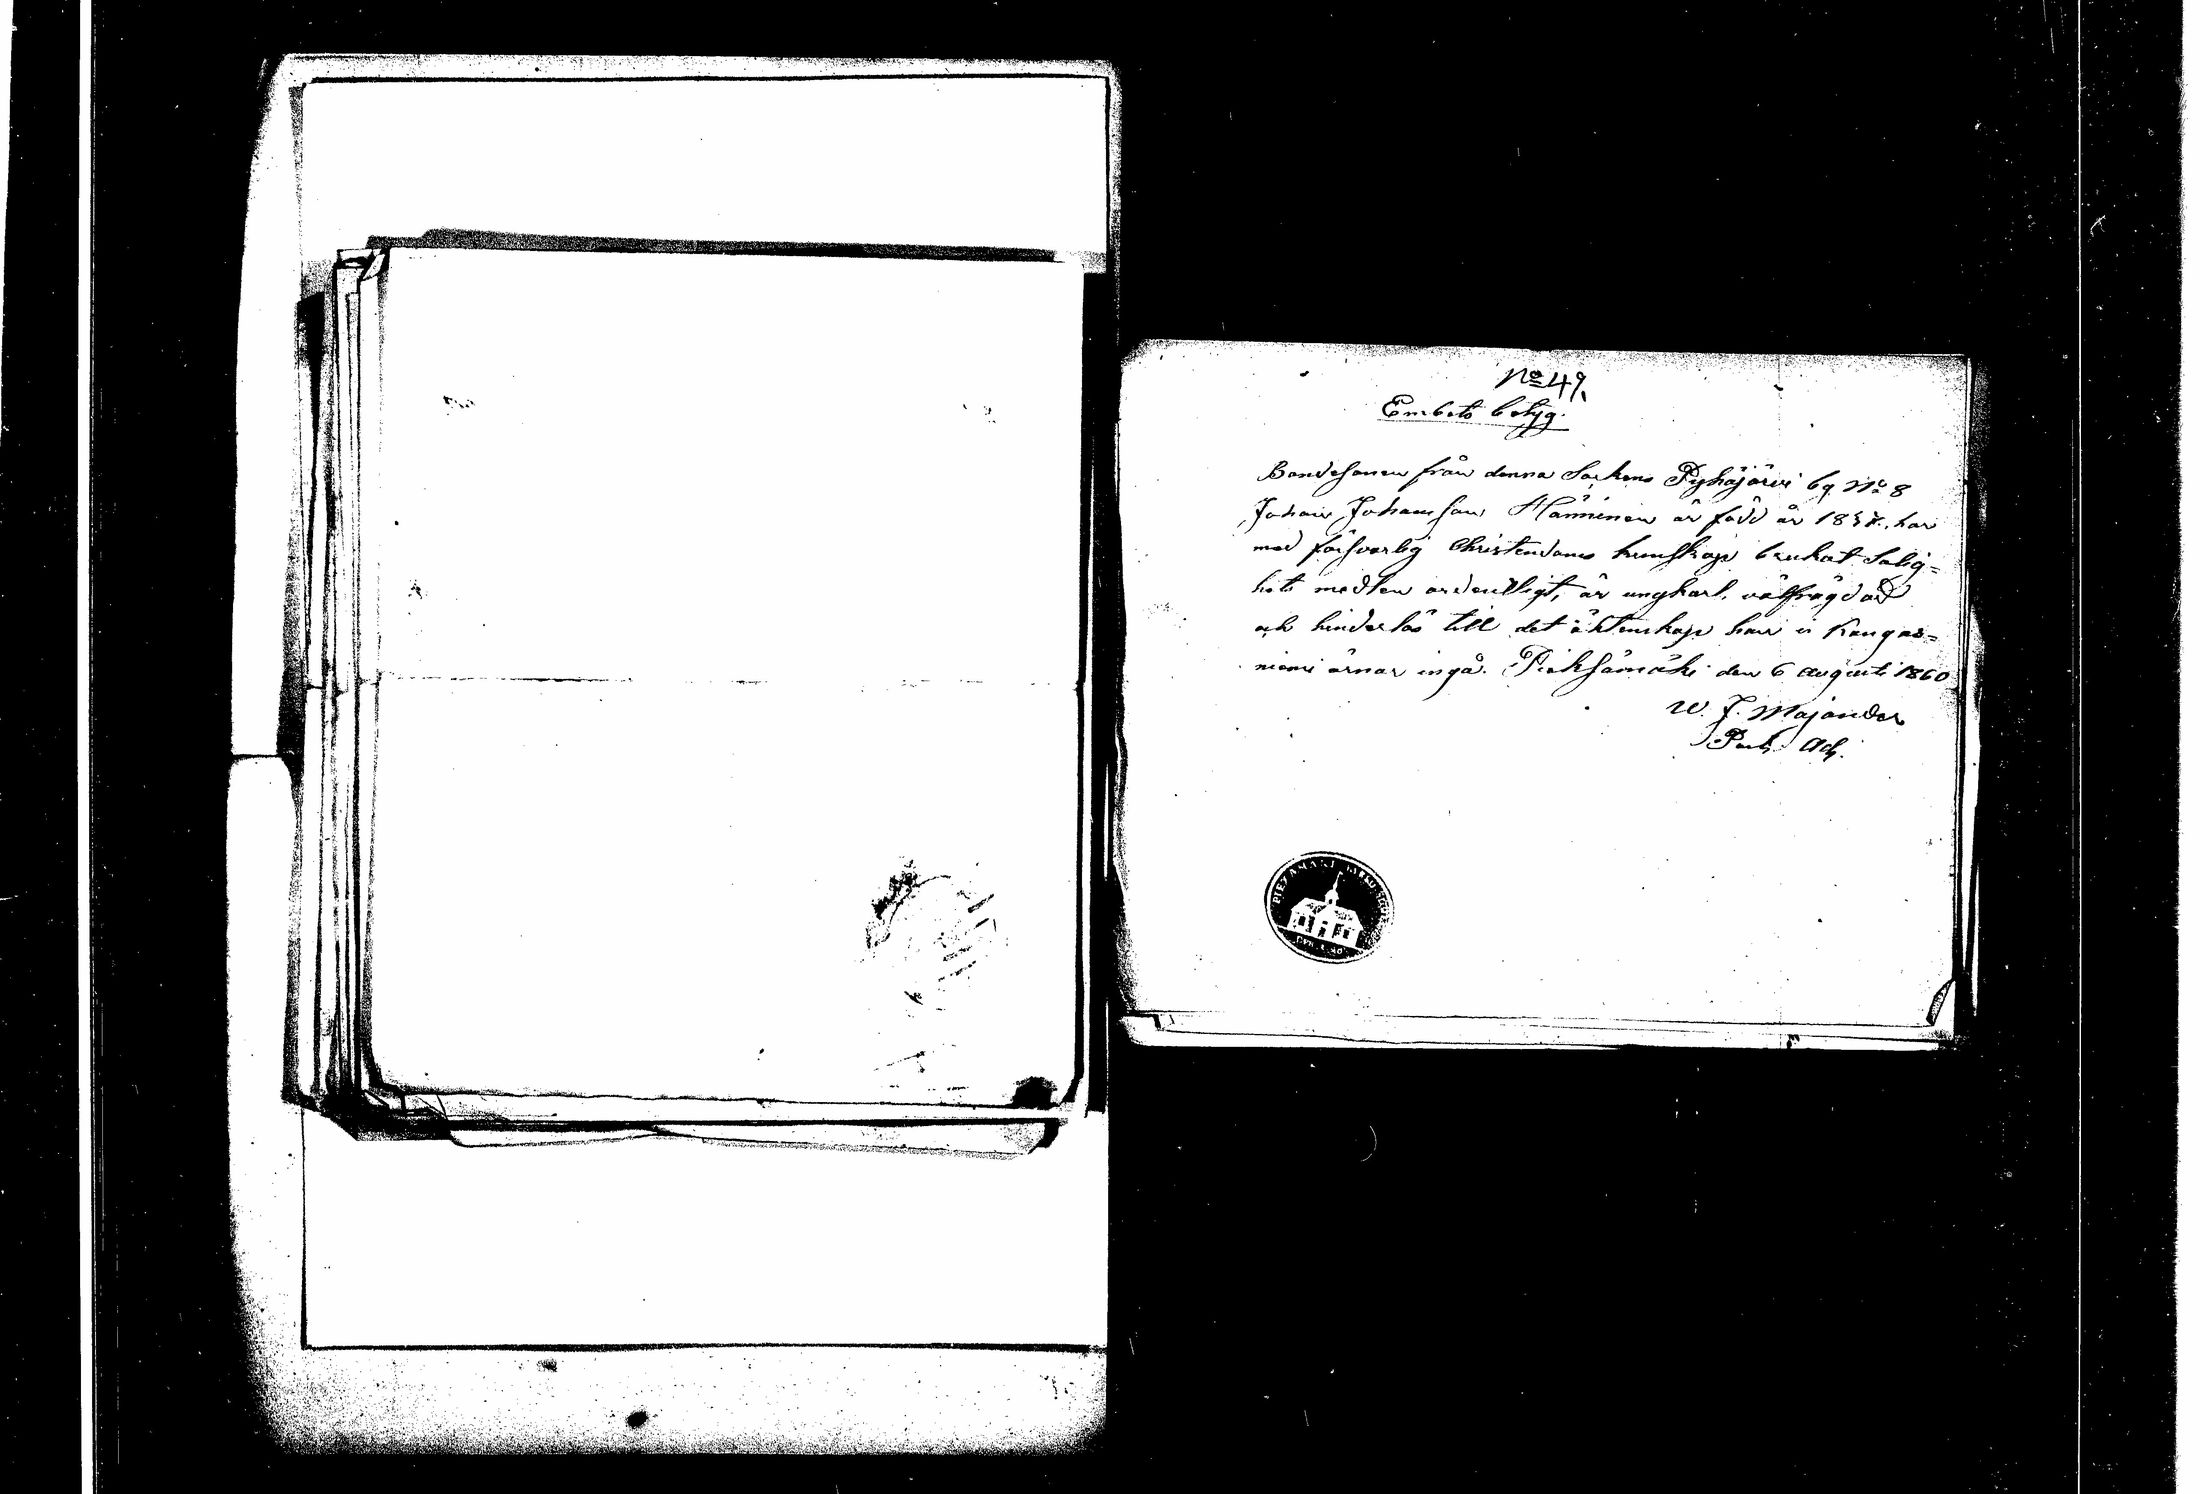 No 49.
Embets betyg.
Bondesonen från denna Sockens Pyhäjärvi by No 8
Johan Johansson Hänninen är född år 18 har
med försvarlig Christendoms kunskap brukat Salig=
hets medlen ordentligt, är ungkarl, välfrägdad
och hinderlös till det äktenskap han i Kangas=
niemi ärnar ingå. Pieksämäki den 6 Augusti 1860
W. J. Majander
Past. Adj.
PIEXÄMÄKI